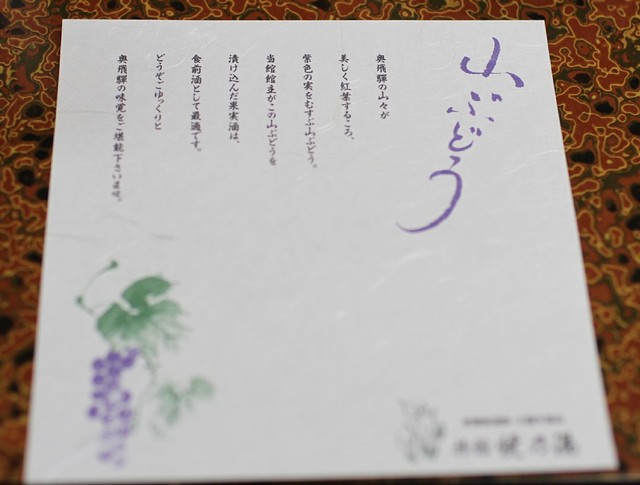 山ぶどう
奥飛騨の山々が
美しく紅葉するころ、
紫色の実をむすぶ山ぶどう。
当館館主がこの山ぶどうを
漬け込んだ果実酒は、
食前酒として最適です。
どうぞごゆっくりと
奥飛騨の味覚をご堪能下さいませ。